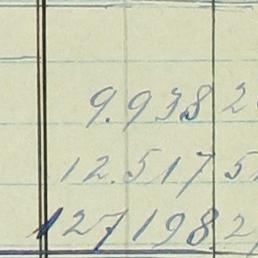 9.938 2
12.517 5
127198.2